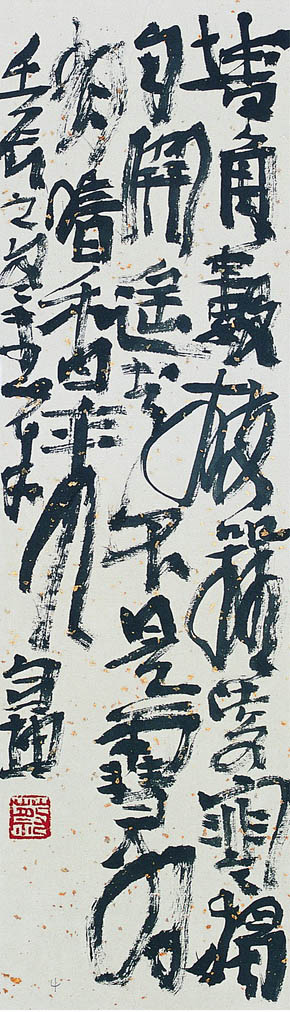 墙角數枝梅凌寒獨
自開遥知不是雪為
有暗香來
壬辰之